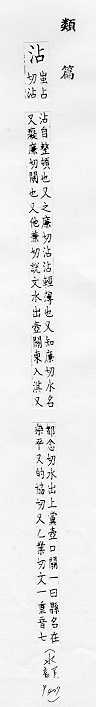 類篇
沾
蚩占
切沾
沾自整頓也又之廉切沾沾輕薄也又知廉切水名
又癡廉切闚也又他兼切說文水出壺關東入淇又
都念切水出上黨壺口關一曰縣名在
樂平又的協切又乙業切文一重音七
(水